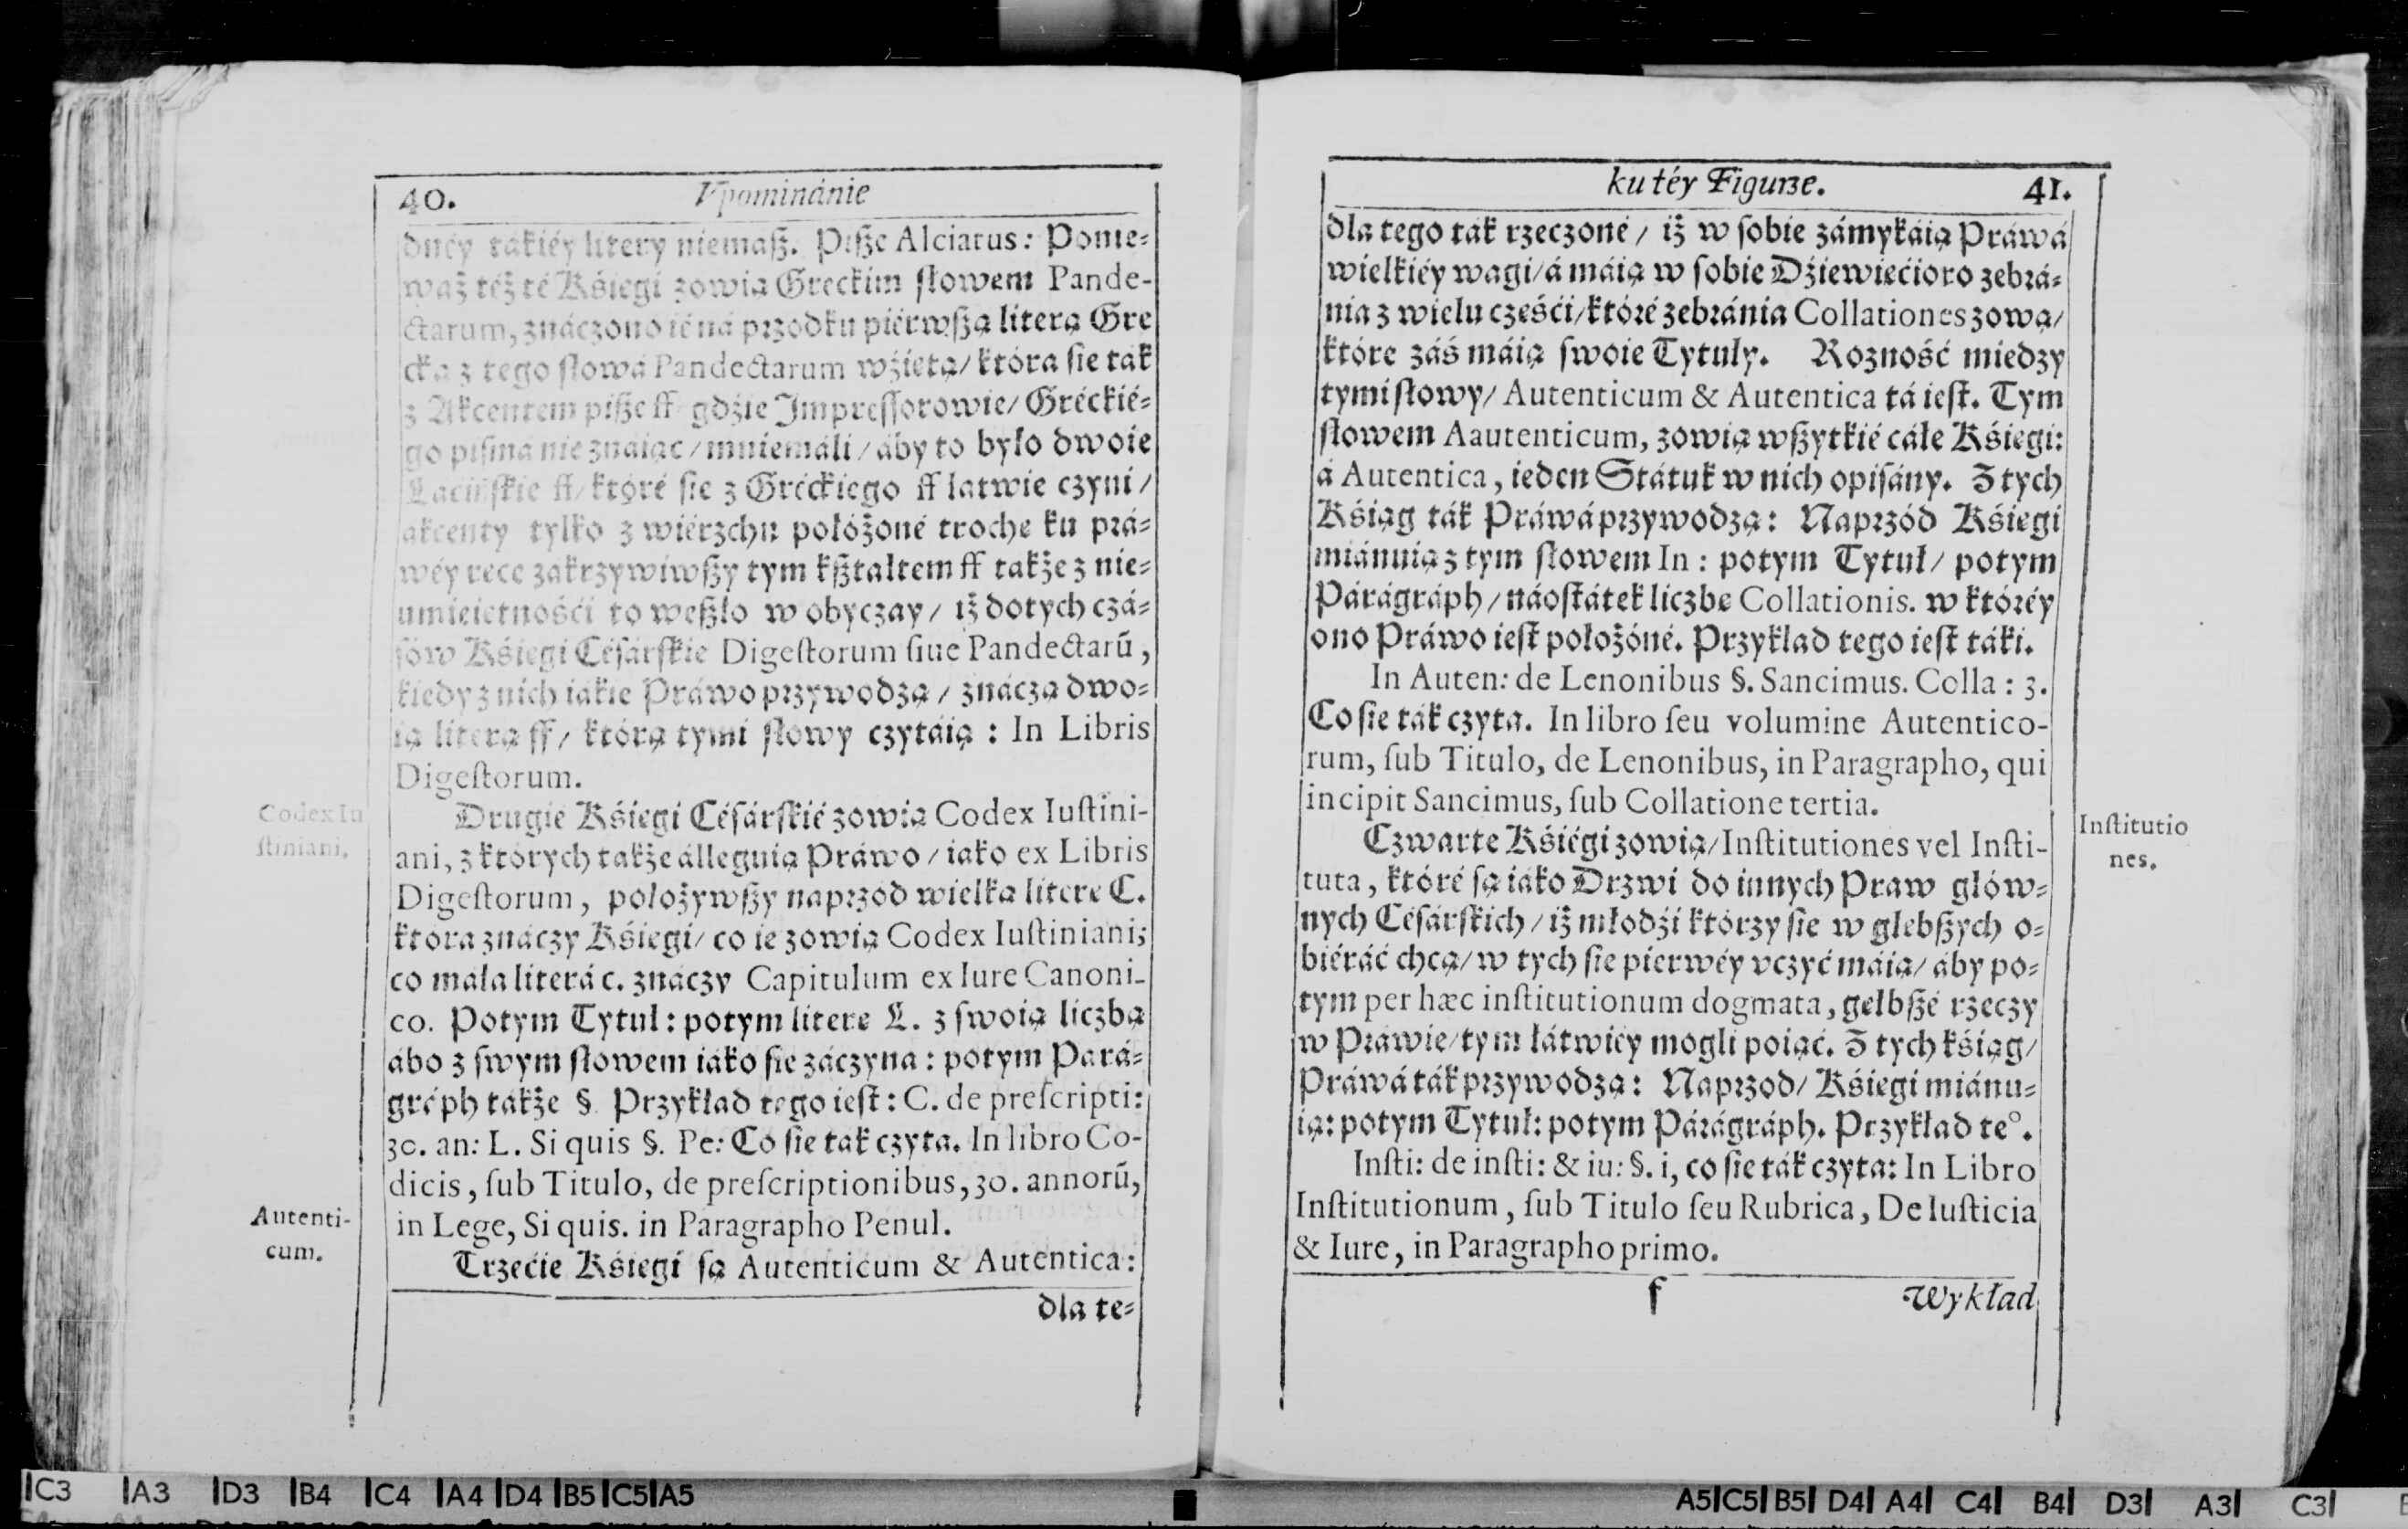 40. Vpominánie
dnéy tákiéy litery niemaſz. Piſze Alciatus: Ponie-
waż téż té Kśiegi zowią Greckim słowem Pande-
ctarum, znáczono ié ná przodku piérwſzą literą Gre
cką z tego słowá Pandectarum wźiętą/ która ſie ták
z Akcentem piſze ff gdźie Impreſſorowie/ Gréckié-
go piſmá nie znáiąc/ mniemáli/ áby to było dwoie
Laćińſkie ff/ któré ſie z Gréckiego ff latwie czyni/
akcenty tylko z wiérzchu położoné troche ku prá-
wéy rece zakrzywiwſzy tym kſztaltem ff także z nie-
umieietnośći to weſzlo w obyczay/ iż dotych czá-
ſów Kśiegi Céſárſkie Digeſtorum ſiue Pandectarũ,
kiedy z nich iákie Práwo przywodzą/ znáczą dwo-
ią literą ff/ którą tymi słowy czytáią: In Libris
Digeſtorum.
Codex Iu
ſtiniani.
Drugié Kśiegi Céſárſkié zowią Codex Iuſtini-
ani, z których także álleguią Práwo/ iako ex Libris
Digeſtorum, położywſzy naprzód wielką litere C.
która znáczy Kśiegi/ co ie zowią Codex Iuſtiniani;
co mała literá c. znáczy Capitulum ex Iure Canoni-
co. Potym Tytul: potym litere L. z ſwoią liczbą
ábo z ſwym słowem iáko ſie záczyna: potym Pará-
gréph tákże §. Przykład tego ieſt: C. de preſcripti:
30. an: L. Si quis §. Pe: Co ſie tak czyta. In libro Co-
dicis, ſub Titulo, de preſcriptionibus, 30. annorũ,
Autenti-
cum.
in Lege, Si quis. in Paragrapho Penul.
Trzećie Kśiegi ſą Autenticum & Autentica:
dla te-
ku téy Figurze. 41.
dla tego ták rzeczoné/ iż w ſobie zámykáią Práwá
wielkiéy wagi/ á máią w ſobie Dźiewiećioro zebrá-
nia z wielu cześći/ któré zebránia Collationes zową/
które záś máią ſwoie Tytuly. Rozność miedzy
tymi słowy/ Autenticum & Autentica tá ieſt. Tym
słowem Aautenticum, zowią wſzytkié cáłe Kśiegi:
á Autentica, ieden Státuk w nich opiſány. Z tych
Kśiąg ták Práwá przywodzą: Naprzód Kśiegi
miánuią z tym słowem In: potym Tytuł/ potym
Párágráph/ náoſtátek liczbe Collationis. w któréy
ono Práwo ieſt położóné. Przykład tego ieſt táki.
In Auten: de Lenonibus §. Sancimus. Colla: 3.
Co ſie ták czyta. In libro ſeu volumine Autentico-
rum, ſub Titulo, de Lenonibus, in Paragrapho, qui
incipit Sancimus, ſub Collatione tertia.
Inſtitutio
nes.
Czwarte Kśiégi zowią/ Inſtitutiones vel Inſti-
tuta, któré ſą iáko Drzwi do innych Praw głów-
nych Céſárſkich/ iż młodźi którzy ſie w głebſzych o-
biéráć chcą/ w tych ſie pierwéy vczyć máią/ áby po-
tym per hæc inſtitutionum dogmata, gełbſzé rzeczy
w Práwie/ tym łátwiéy mogli poiąć. Z tych kśiąg/
Práwá ták przywodzą: Naprzod/ Kśiegi miánu-
ią: potym Tytuł: potym Párágráph. Przykład te°.
Inſti: de inſti: & iu: §. i, co ſie ták czyta: In Libro
Inſtitutionum, ſub Titulo ſeu Rubrica, De Iuſticia
& Iure, in Paragrapho primo.
f Wykład
C3 A3 D3 B4 C4 A4 D4 B5 C5 A5
A5 C5 B5 D4 A4 C4 B4 D3 A3 C3